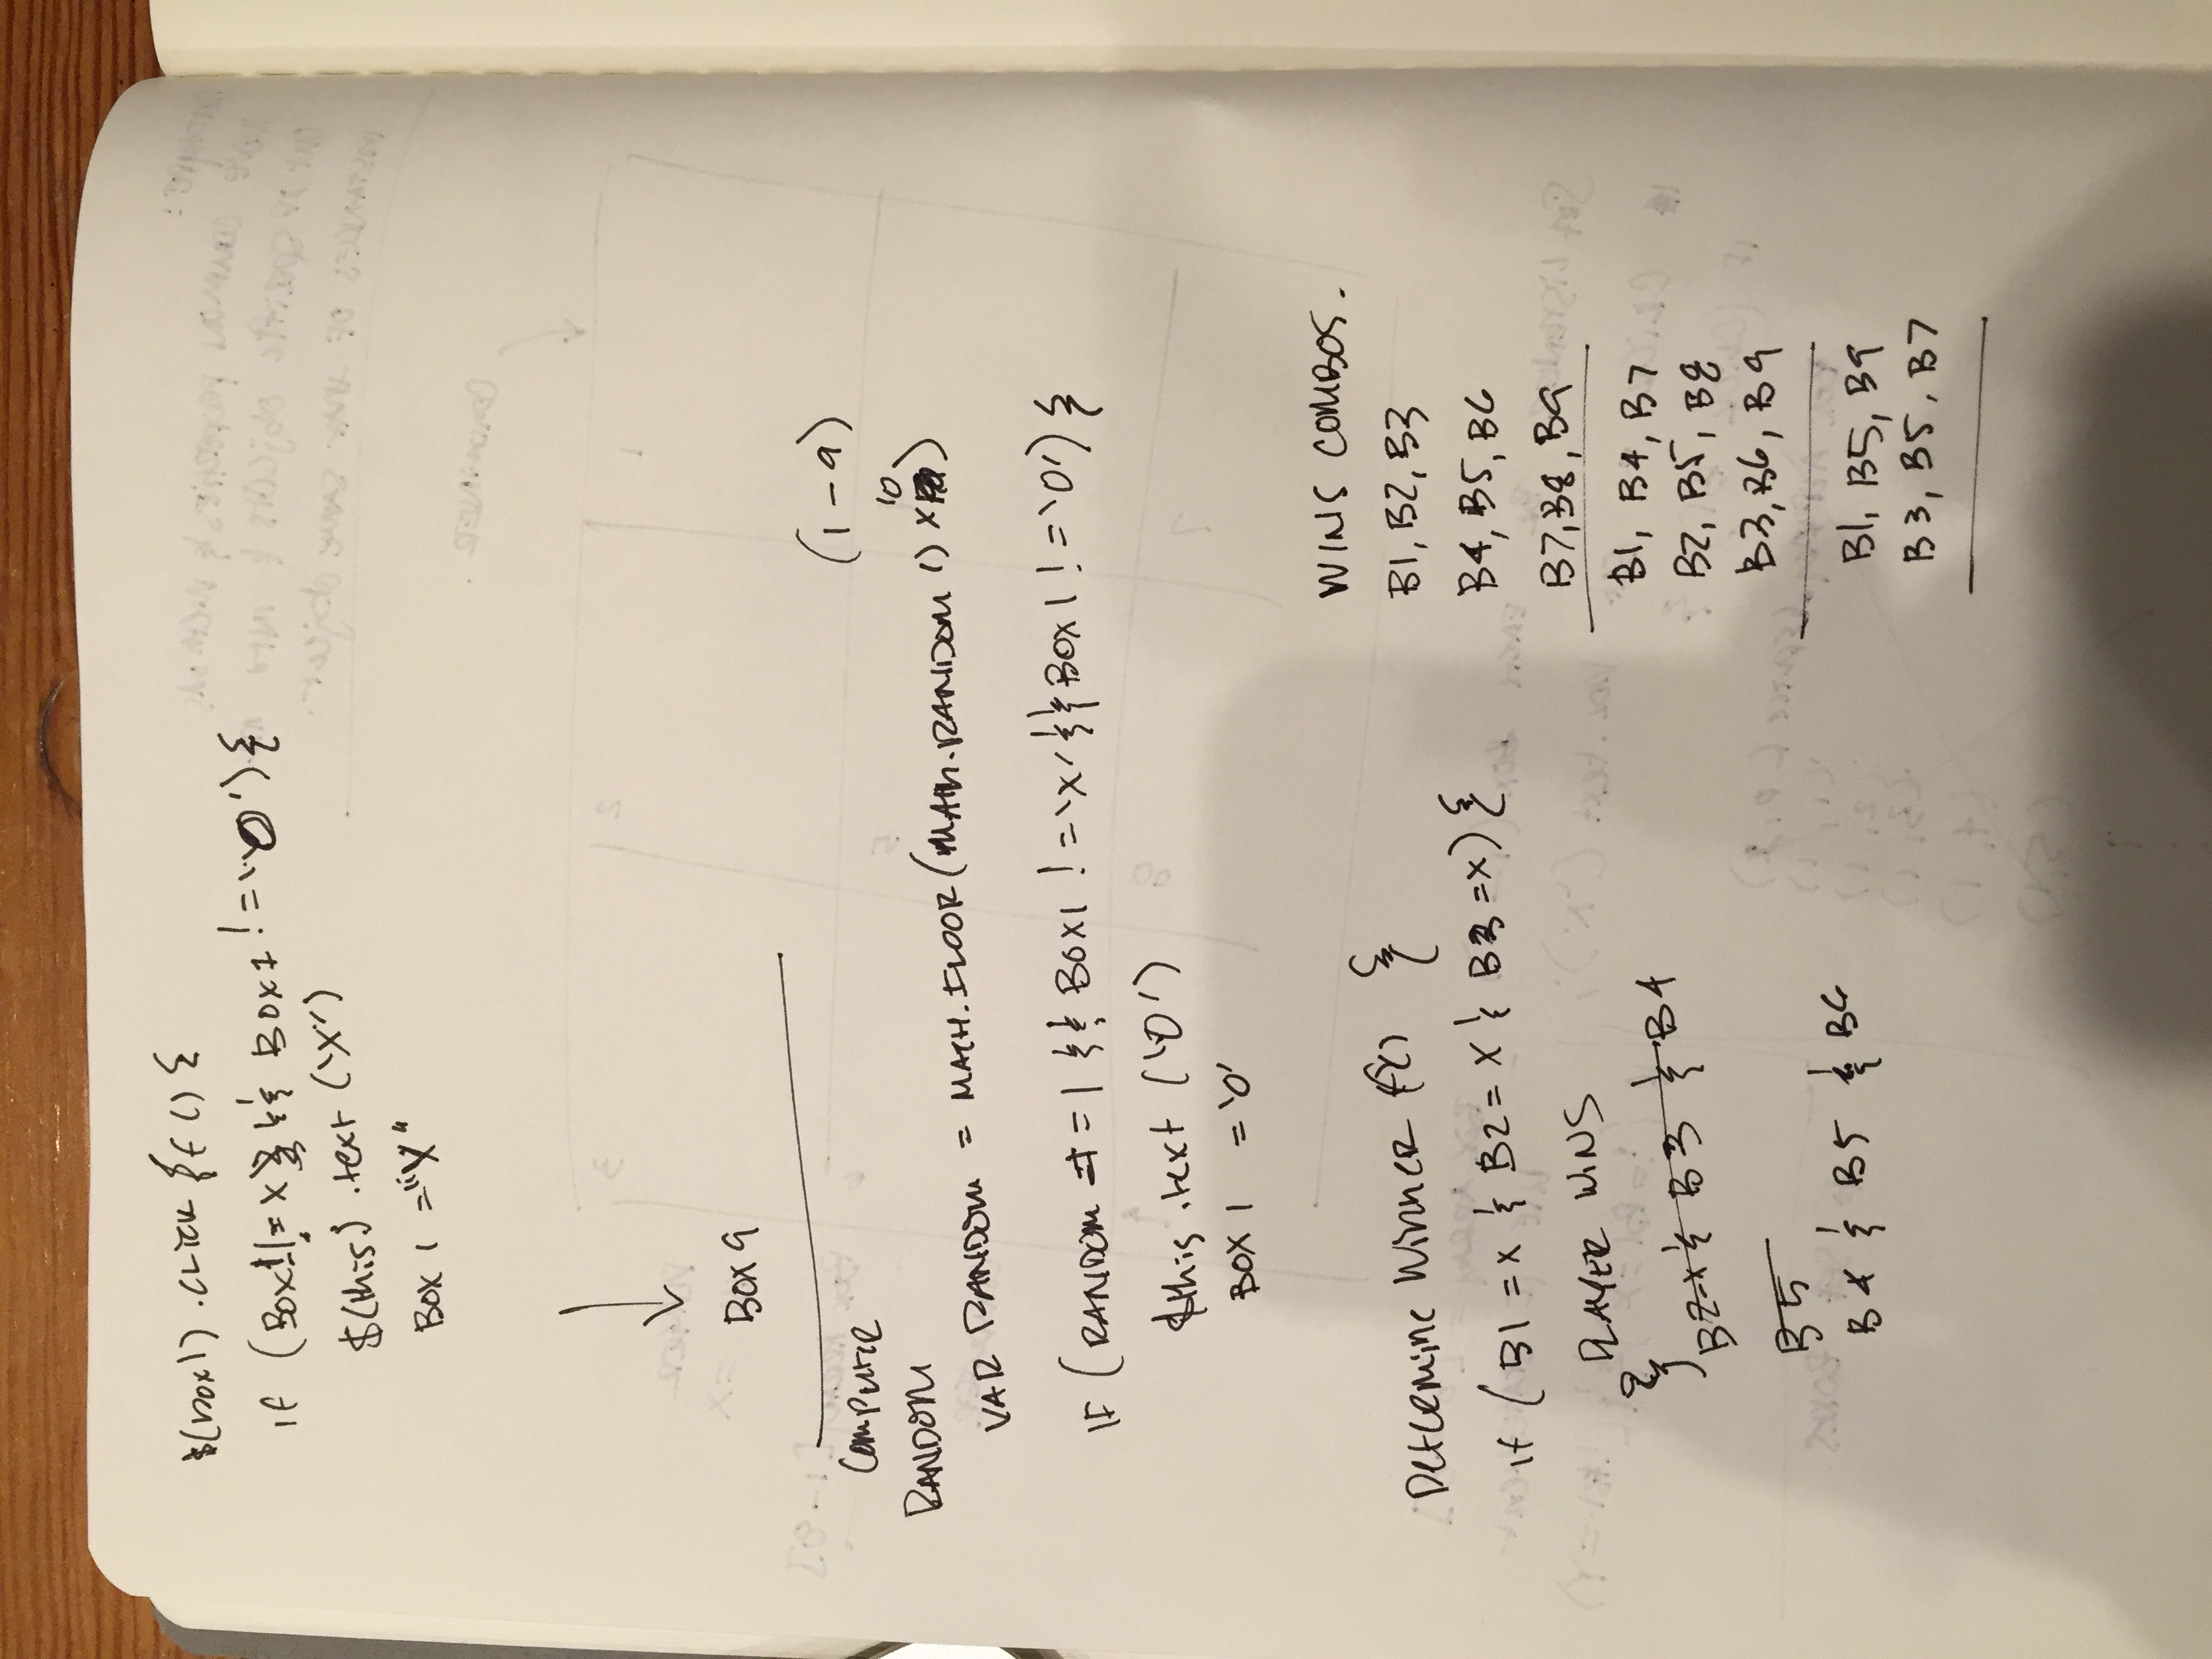 $(box1) .click {f () {
if (Box1!= x && Box1 != '0') {
$(this) .text ('X')
Box 1 = "X"
Box 9
Computer
RANDOM
(1-9)
10
VAR RANDOM = MATH.FLOOR (MATH.RANDOM () x )
IF (RANDOM == 1 && BOX1 != 'X' && BOX1 != '0') {
$this .text ('0')
BOX 1 = '0'
Determine Winner f(x) {
if (B1 = x & B2 = x & B3 = x) {
PLAYER WINS
}
B2=x & B3 & B4
B5
B4 & B5 & B6
WINS COMBOS.
B1, B2, B3
B4, B5, B6
B7, B8, B9
B1, B4, B7
B2, B5, B8
B3, B6, B9
B1, B5, B9
B3, B5, B7